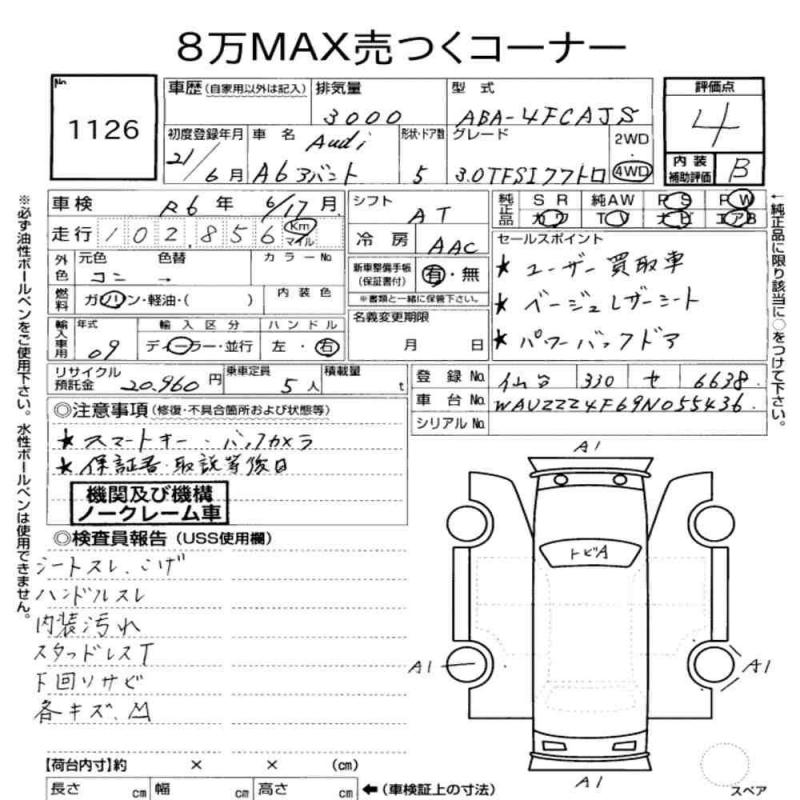 8万MAX売つくコーナー
No 1126
車歴 (自家用以外は記入) 排気量 3000 型式 ABA-4FCAJS 評価点 4
初度登録年月 21/6月 車名 Audi A6アバント 形状・ドア数 5 グレード 3.0TFSIクワトロ 2WD 4WD 内装補助評価 B
車検 R6年 6/17月 シフト AT 純正品 SR 純AW PS PW
走行 102,856 Km マイル 冷房 AAC カワ TV ナビ エアB
外色 元色 コン 色替 → カラーNo 新車整備手帳(保証書付) 有・無
※書類と一緒に保管下さい。
燃料 ガソリン・軽油・( ) 内装色
輸入車用 年式 09 輸入区分 ディーラー・並行 ハンドル 左・右 名義変更期限 月 日
セールスポイント
★ユーザー買取車
★ベージュレザーシート
★パワーバックドア
←純正品に限り該当に○をつけて下さい。
リサイクル預託金 20,960円 乗車定員 5人 積載量 t
登録No. 仙台 330 セ 6638
車台No. WAUZZZ4F69N055436
シリアルNo.
◎注意事項(修復・不具合箇所および状態等)
★スマートキー・バックカメラ
★保証書・取説等後日
機関及び機構
ノークレーム車
※必ず油性ボールペンをご使用下さい。水性ボールペンは使用できません。
◎検査員報告 (USS使用欄)
シートスレ、こげ
ハンドルスレ
内装汚れ
スタッドレスT
下回りサビ
各キズ、凹
A1
トビA
A1
A1
A1
スペア
【荷台内寸】約 × × (cm)
長さ cm 幅 cm 高さ cm ←(車検証上の寸法)